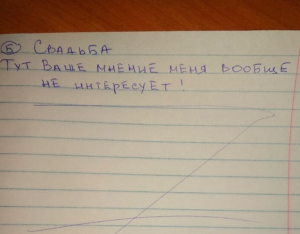 ⑤ Свадьба
Тут Ваше мнение меня вообще
не интересует!